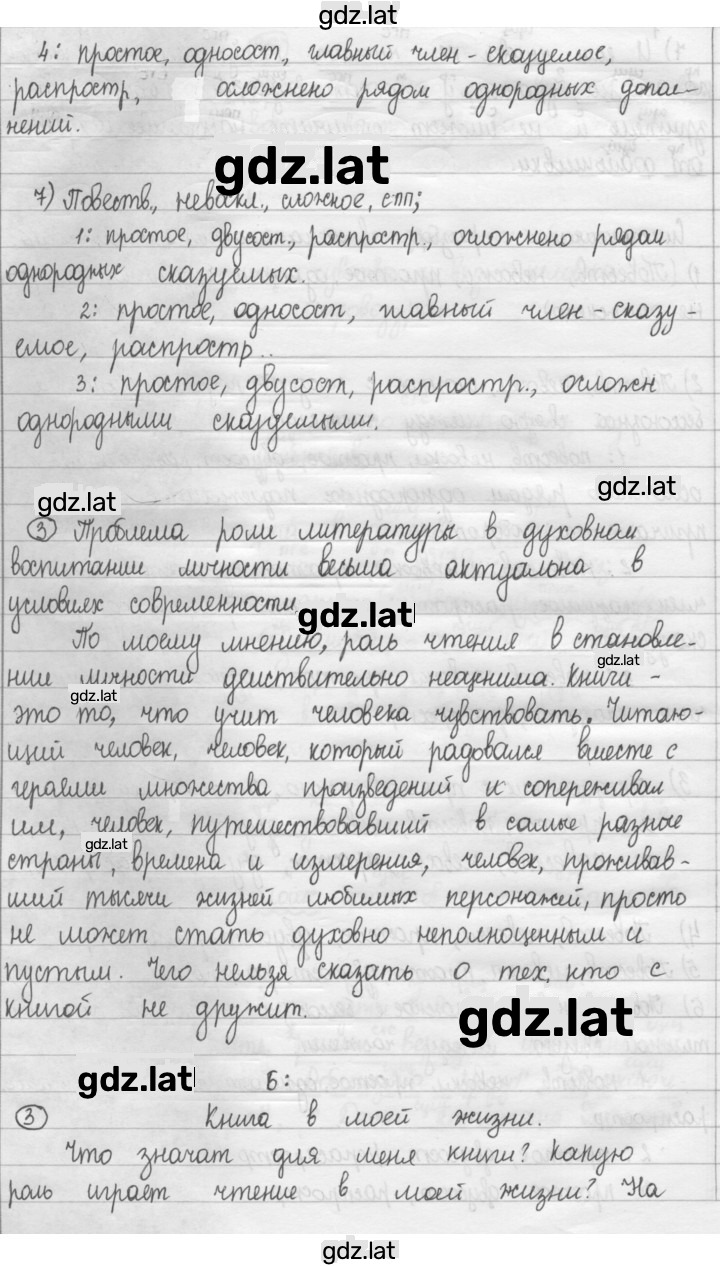 gdz.lat
4: простое, односост, главный член - сказуемое,
распростр, осложнено рядом однородных допол-
нений.
gdz.lat
7) Повеств., невоскл., сложное, спп;
1: простое, двусост., распростр., осложнено рядом
однородных сказуемых.
2: простое, односост, главный член - сказу-
емое, распростр..
3: простое, двусост, распростр., осложн
однородными сказуемыми.
gdz.lat
gdz.lat
3 Проблема роли литературы в духовном
воспитании личности весьма актуальна в
условиях современности.
gdz.lat
По моему мнению, роль чтения в становле-
gdz.lat
нии личности действительно неоценима. Книги -
gdz.lat
это то, что учит человека чувствовать. Читаю-
щий человек, человек, который радовался вместе с
героями множества произведений и сопереживал
им, человек, путешествовавший в самые разные
gdz.lat
страны, времена и измерения, человек, проживав-
ший тысячи жизней любимых персонажей, просто
не может стать духовно неполноценным и
пустым. Чего нельзя сказать о тех, кто с
книгой не дружит.
gdz.lat
gdz.lat
Б:
3 Книга в моей жизни.
Что значат для меня книги? Какую
роль играет чтение в моей жизни? На
gdz.lat